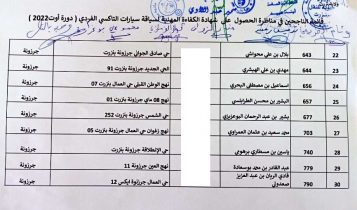 قائمة الناجحين في مناظرة الحصول على شهادة الكفاءة المهنية لسياقة سيارات التاكسي الفردي ( دورة أوت 2022 )
22 643 بلال بن علي محواشي حي صادق الجواني جرزونة بنزرت جرزونة
23 644 مهدي بن علي الهيشري الحي الجديد جرزونة بنزرت 91 جرزونة
24 656 اسماعيل بن مصطفى البحري نهج الوطن القبلي حي العمال بنزرت 07 جرزونة
25 657 البشير بن محسن الطرابلسي نهج 08 ماي جرزونة بنزرت 01 جرزونة
26 677 بشير بن عبد الرحمان البوعزيزي حي الشمس جرزونة بنزرت 252 جرزونة
27 703 محمد سعيد بن عثمان العمراوي نهج زغوان حي العمال جرزونة بنزرت 05 جرزونة
28 740 ياسين بن مسطاري برهومي حي الإنطلاقة جرزونة بنزرت جرزونة
29 779 عبد القادر بن محمد بوسعادة نهج العين جرزونة 11 جرزونة
30 790 فادي الريان بن عبد العزيز حي العمال جرزونة ايكس 12 جرزونة
صعدولي